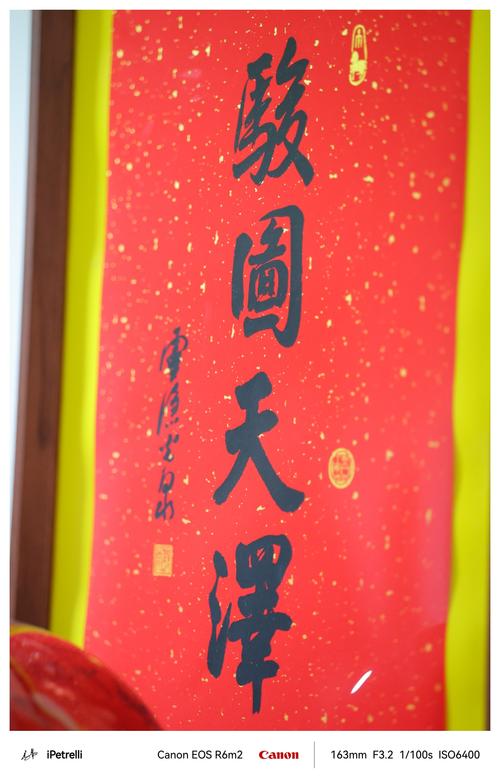 駿圖天澤
iPetrelli
Canon EOS R6m2
Canon
163mm F3.2 1/100s ISO6400